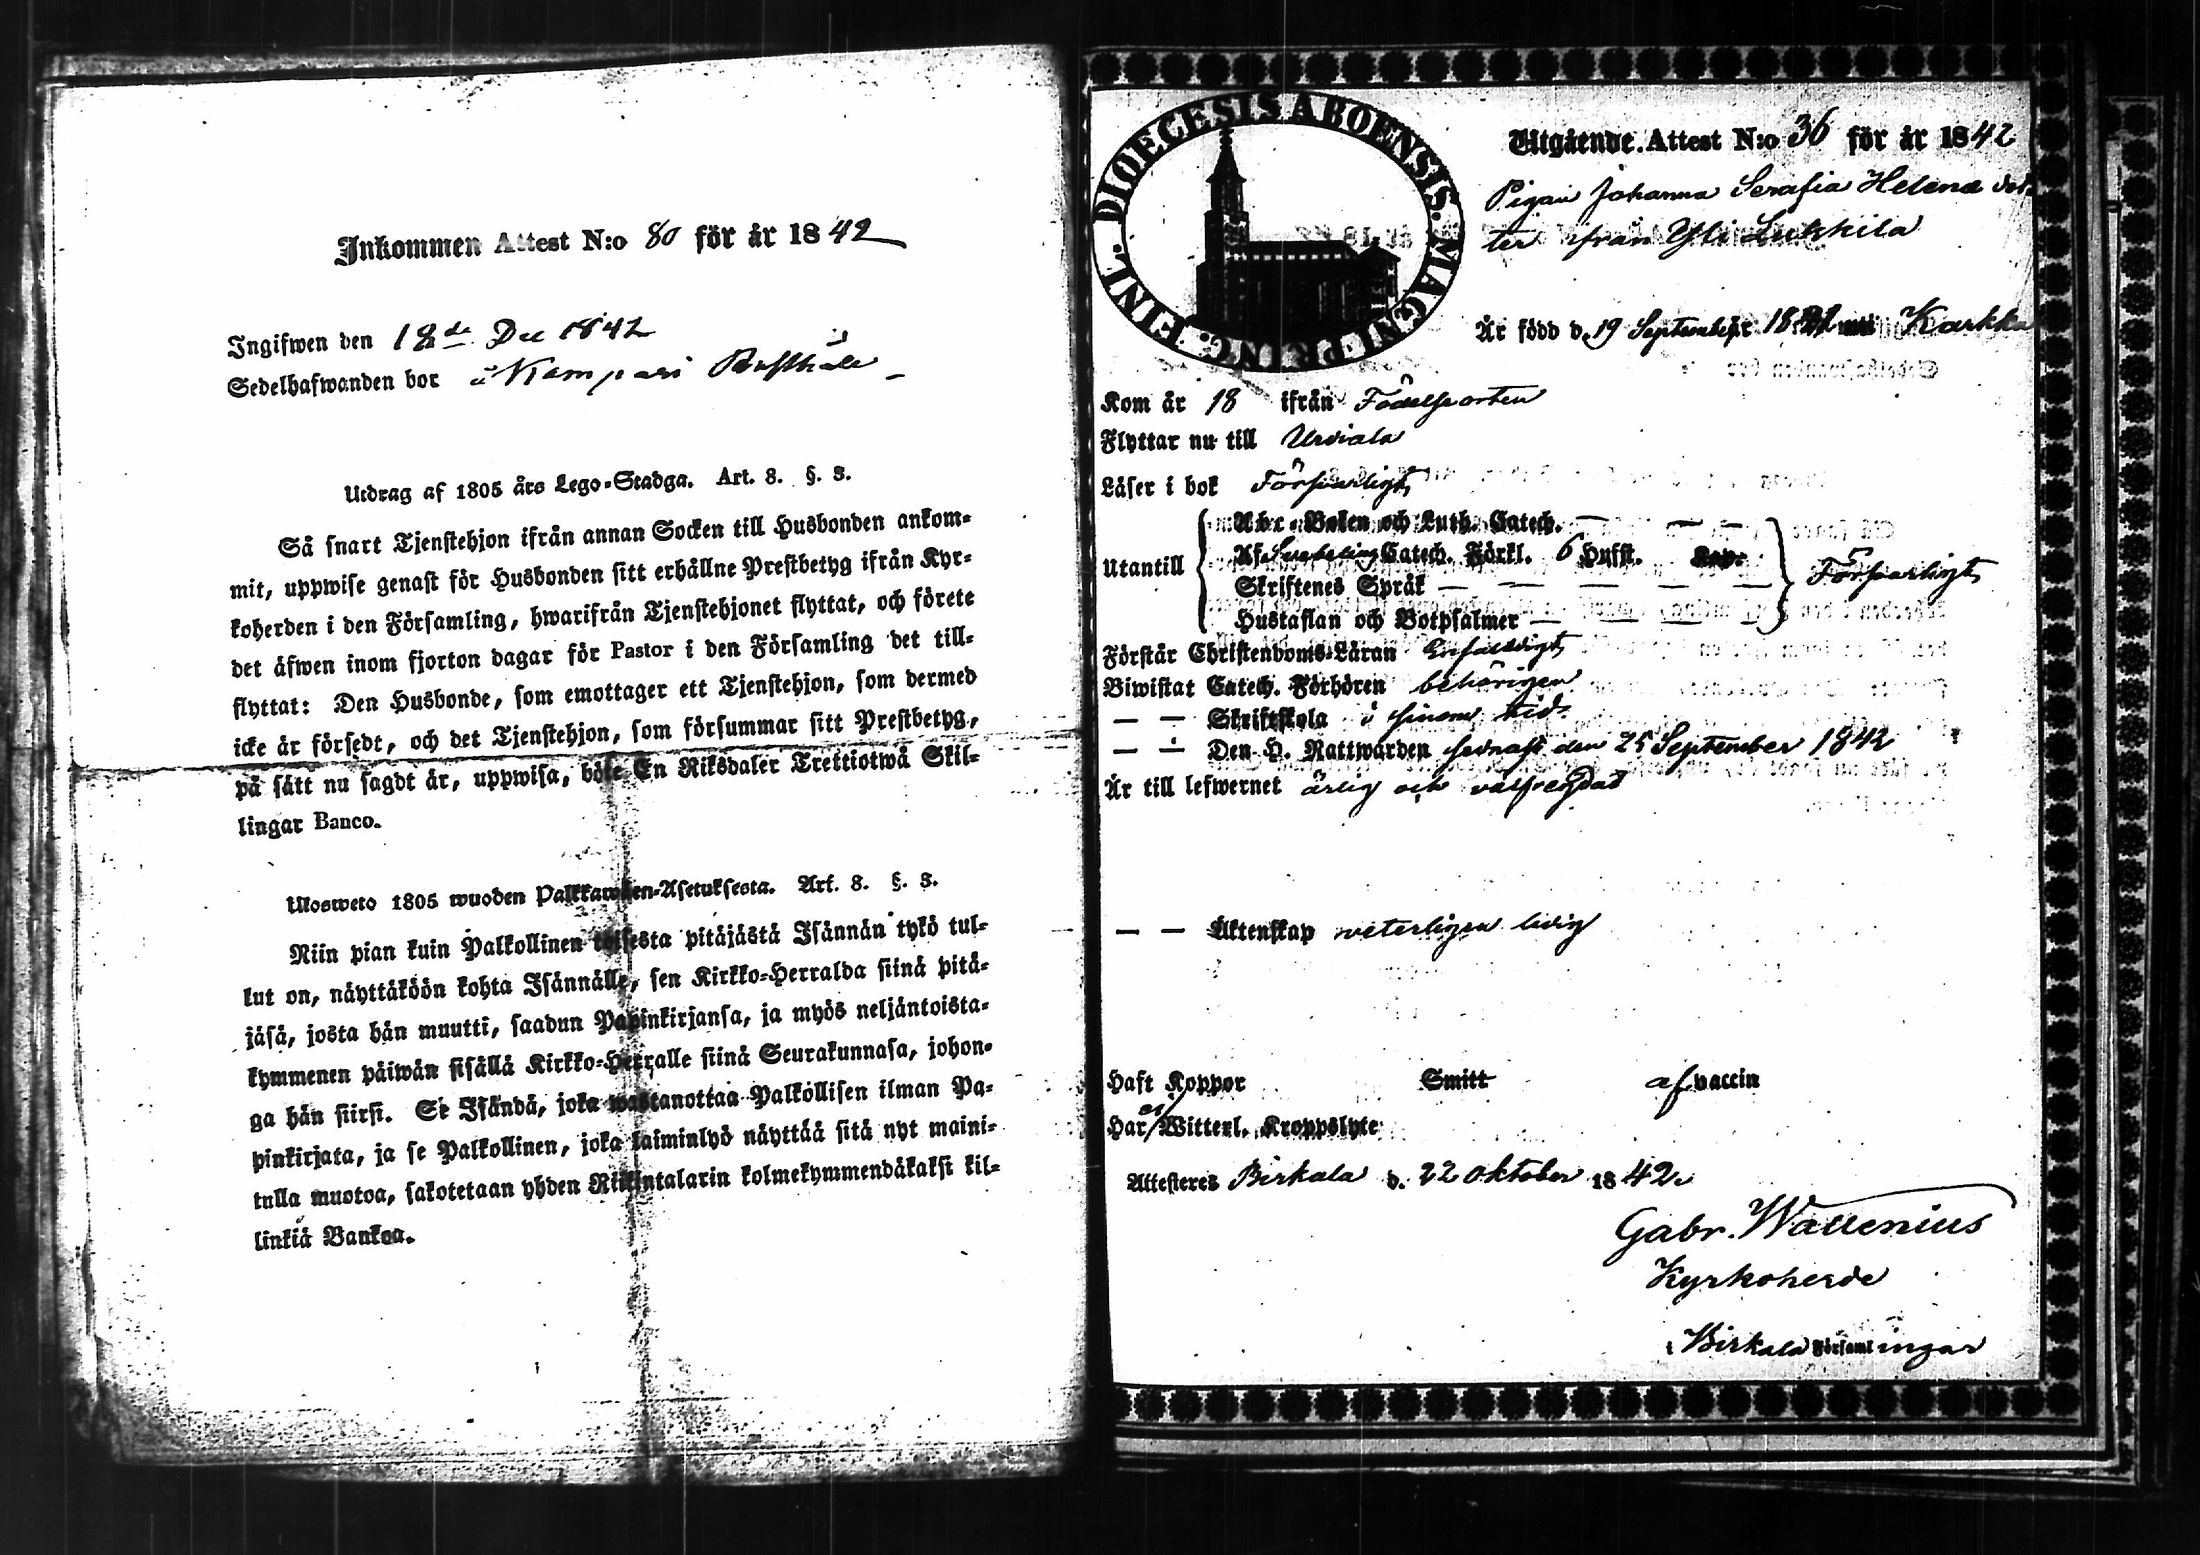 Inkommen Attest N:o 80 för år 1842
Ingifwen den 18de Dec 1842
Sedelhafwanden bor å Kampari Rusthåll
Utdrag af 1805 års Lego-Stadga. Art. 8. §. 3.
Så snart Tjenstehjon ifrån annan Socken till Husbonden ankom-
mit, uppwise genast för Husbonden sitt erhållne Prestbetyg ifrån Kyr-
koherden i den Församling, hwarifrån Tjenstehjonet flyttat, och förete
det äfwen inom fjorton dagar för Pastor i den Församling det till-
flyttat: Den Husbonde, som emottager ett Tjenstehjon, som dermed
icke är försedt, och det Tjenstehjon, som försummar sitt Prestbetyg,
på sätt nu sagdt är, uppwisa, böte En Riksdaler Trettiotwå Skil-
lingar Banco.
Ulosweto 1805 wuoden Palkkawäen-Asetuksesta. Art. 8. §. 3.
Niin pian kuin Palkollinen toisesta pitäjästä Isännän tykö tul-
lut on, näyttäköön kohta Isännälle, sen Kirkko-Herralda siinä pitä-
jäsä, josta hän muutti, saadun Papinkirjansa, ja myös neljäntoista-
kymmenen päiwän sisällä Kirkko-Herralle siinä Seurakunnasa, johon-
ga hän siirsi. Se Isändä, joka wastanottaa Palkollisen ilman Pa-
pinkirjata, ja se Palkollinen, joka laiminlyö näyttää sitä nyt maini-
tulla muotoa, sakotetaan yhden Riikintalarin kolmekymmendäkaksi kil-
linkiä Bankoa.
DIOECESIS ABOENSIS. MAGNI PRINC. FINL.
Utgående. Attest N:o 36 för år 1842
Pigan Johanna Serafia Helena dot-
ter ifrån Yli Liukkila
Är född d. 19 September 18 i Karkku
Kom år 18 ifrån Födelseorten
Flyttar nu till Urdiala
Läser i bok Försvarligt
Utantill
Abc-Boken och Luth. Catech. — — —
Af Svebelii Catech. Förkl. 6 Hufst. Kap.
Skriftenes Språk — — — —
Hustaflan och Botpsalmer — — —
Försvarligt
Förstår Christendoms-Läran Enfaldigt
Biwistat Catech. Förhören behörigen
— — Skriftskola i sinom tid.
— — Den H. Nattwarden senast den 25 September 1842
Är till lefwernet ärlig och välfrejdad
— — Äktenskap veterligen ledig
Haft Koppor Smitt af vaccin
Har ej Witterl. Kroppslyte
Attesteres Birkala d. 22 oktober 1842.
Gabr. Wallenius
Kyrkoherde
i Birkala Församlingar